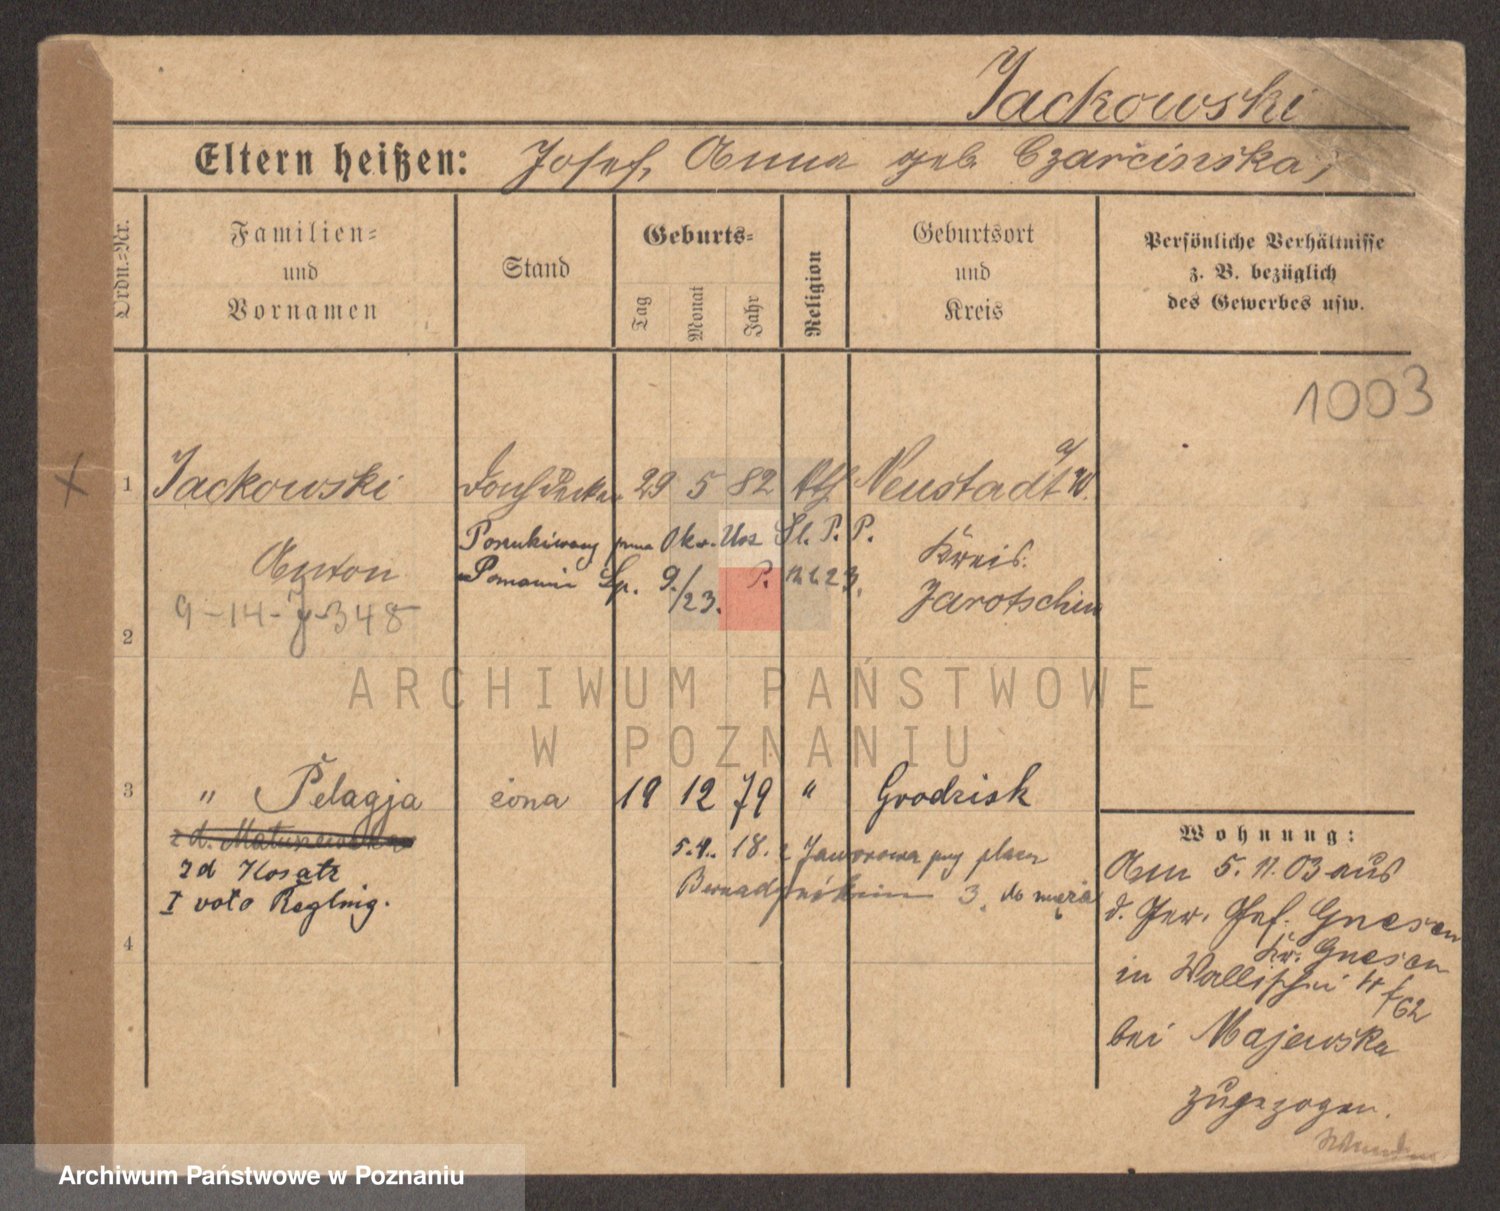 Jackowski
Eltern heißen: Josef, Anna geb Czarcinska,
Ordn.-Nr.
Familien- und Vornamen
Stand
Geburts-
Tag
Monat
Jahr
Religion
Geburtsort und Kreis
Persönliche Verhältnisse
z. B. bezüglich
des Gewerbes usw.
1003
1 Jackowski 29 5 82 Kth Neustadt a/W.
Anton
Kreis
Jarotschin
Poszukiwany przez Okr. Urz Śl. P. P.
w Poznaniu Lp. 9./23. P.
9-14-J-348
2
ARCHIWUM PAŃSTWOWE
W POZNANIU
3 " Pelagja żona 19 12 79 " Grodzisk
z d. Matuszewska
z d Kosatz
I voto Reglnig.
5.9. 18. z Jaworowa przy placu
Bernadyńskim 3. do męża
4
Wohnung:
Am 5. 11. 03 aus
d. Ger. Gef. Gnesen
Kr. Gnesen
in Wallischei
62
bei Majewska
zugezogen.
Archiwum Państwowe w Poznaniu